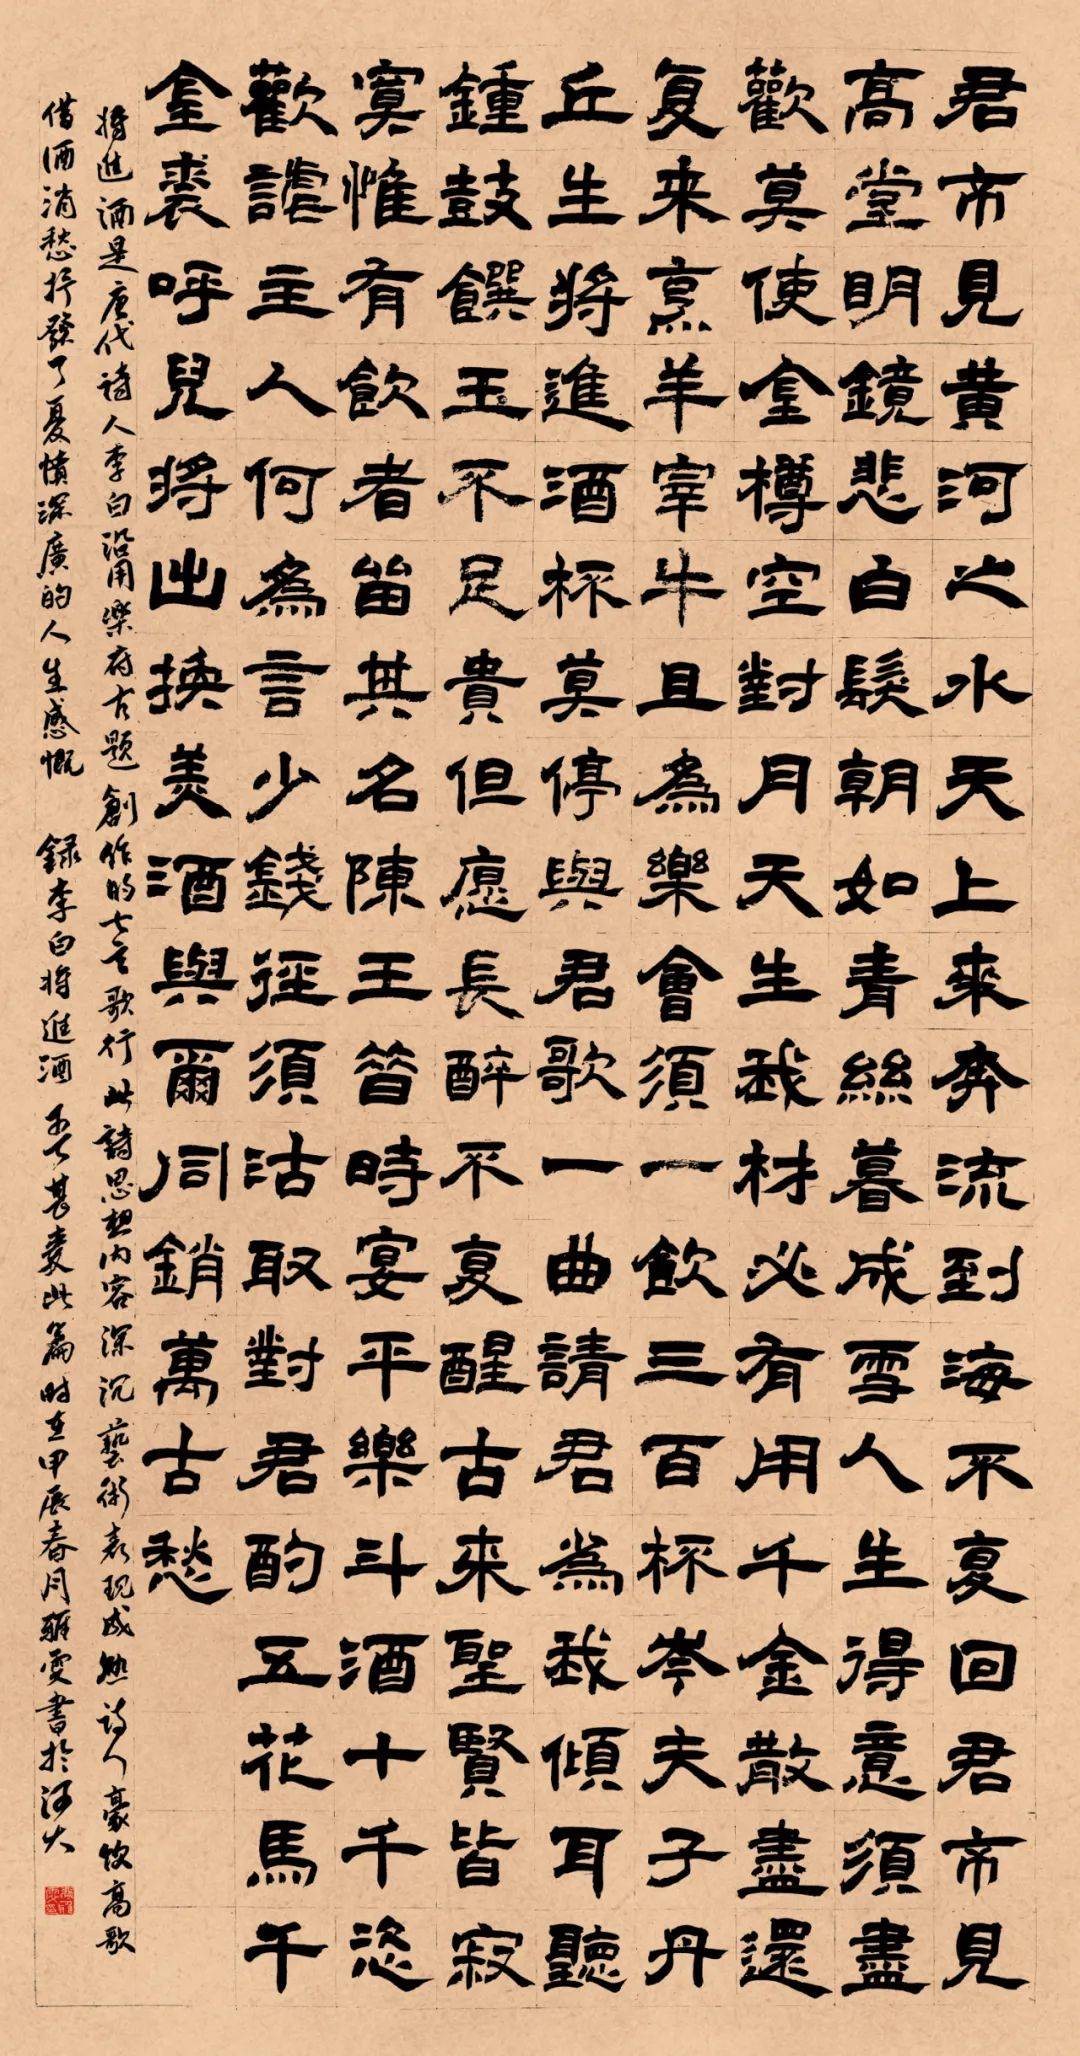 君不見黃河之水天上來奔流到海不复回君不見
高堂明鏡悲白髮朝如青絲暮成雪人生得意須盡
歡莫使金樽空對月天生我材必有用千金散盡還
复来烹羊宰牛且為樂會須一飲三百杯岑夫子丹
丘生將進酒杯莫停與君歌一曲請君為我傾耳聽
鍾鼓饌玉不足貴但愿長醉不复醒古来聖賢皆寂
寞惟有飲者留其名陳王昔時宴平樂斗酒十千恣
歡謔主人何為言少錢徑須沽取對君酌五花馬千
金裘呼兒將出換美酒與爾同銷萬古愁
將進酒是唐代诗人李白沿用樂府古题創作的七言歌行此詩思想内容深沉藝術表現成熟诗人豪饮高歌
借酒消愁抒發了憂憤深廣的人生感慨 録李白將進酒 甚愛此篇時在甲辰春月雅雯書於河大